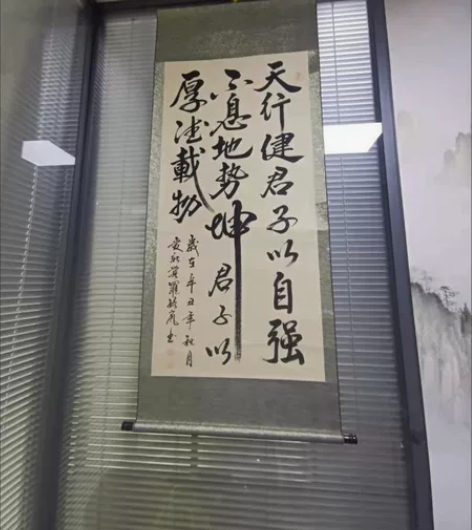 天行健君子以自强
不息地势坤君子以
厚德載物
歲在辛丑年秋月